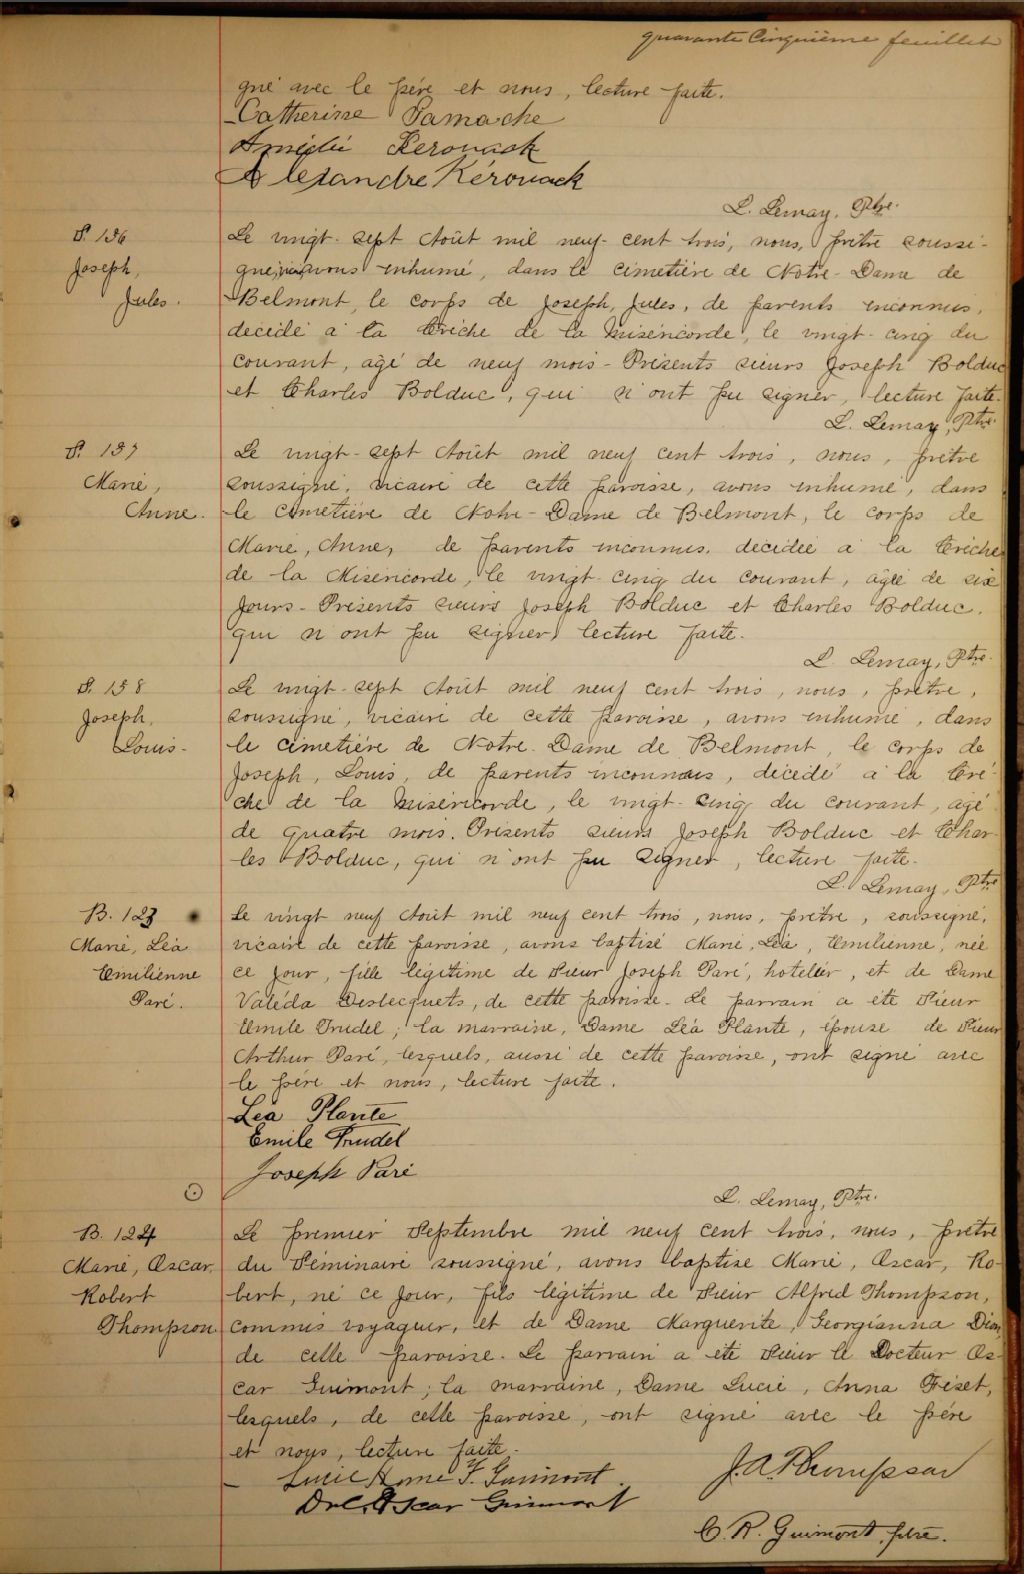 quarante cinquième feuillet
gné avec le père et nous, lecture faite.
Catherine Gamache
Amédée Kerouack
Alexandre Kérouack
L. Lemay, Ptre.
S. 136
Joseph,
Jules.
Le vingt-sept Août mil neuf-cent trois, nous, prêtre soussi-
gné, avons inhumé, dans le cimetière de Notre-Dame de
Belmont, le corps de Joseph, Jules, de parents inconnus,
décédé à la Crèche de la Miséricorde, le vingt-cinq du
courant, agé de neuf mois - Présents sieurs Joseph Bolduc
et Charles Bolduc, qui n'ont pu signer, lecture faite.
L. Lemay, Ptre.
S. 137
Marie,
Anne.
Le vingt-sept Août mil neuf cent trois, nous, prêtre
soussigné, vicaire de cette paroisse, avons inhumé, dans
le cimetière de Notre-Dame de Belmont, le corps de
Marie, Anne, de parents inconnus, décédée à la Crèche
de la Miséricorde, le vingt-cinq du courant, agée de six
jours - Présents sieurs Joseph Bolduc et Charles Bolduc,
qui n'ont pu signer, lecture faite.
L. Lemay, Ptre.
S. 138
Joseph,
Louis-
Le vingt-sept Août mil neuf cent trois, nous, prêtre,
soussigné, vicaire de cette paroisse, avons inhumé, dans
le cimetière de Notre-Dame de Belmont, le corps de
Joseph, Louis, de parents inconnus, décédé à la Crè-
che de la Miséricorde, le vingt-cinq du courant, agé
de quatre mois. Présents sieurs Joseph Bolduc et Char-
les Bolduc, qui n'ont pu signer, lecture faite.
L. Lemay, Ptre
B. 123
Marie, Léa
Emilienne
Paré.
Le vingt neuf Août mil neuf cent trois, nous, prêtre, soussigné,
vicaire de cette paroisse, avons baptisé Marie, Léa, Emilienne, née
ce jour, fille légitime de Sieur Joseph Paré, hotelier, et de Dame
Valéda Destecquets, de cette paroisse. Le parrain a été Sieur
Emile Trudel; la marraine, Dame Léa Plante, épouse de Sieur
Arthur Paré, lesquels, aussi de cette paroisse, ont signé avec
le père et nous, lecture faite.
Léa Plante
Emile Trudel
Joseph Paré
L. Lemay, Ptre.
B. 124
Marie, Oscar,
Robert
Thompson
Le premier Septembre mil neuf cent trois, nous, prêtre
du Séminaire soussigné, avons baptisé Marie, Oscar, Ro-
bert, né ce jour, fils légitime de Sieur Alfred Thompson,
commis voyageur, et de Dame Marguerite, Georgianna Dion,
de cette paroisse. Le parrain a été Sieur le Docteur Os-
car Guimont; la marraine, Dame Lucie, Anna Fiset,
lesquels, de cette paroisse, ont signé avec le père
et nous, lecture faite.
Lucie Anna F. Guimont.
J. A. Thompson
Oscar Guimont
C. R. Guimont, ptre.